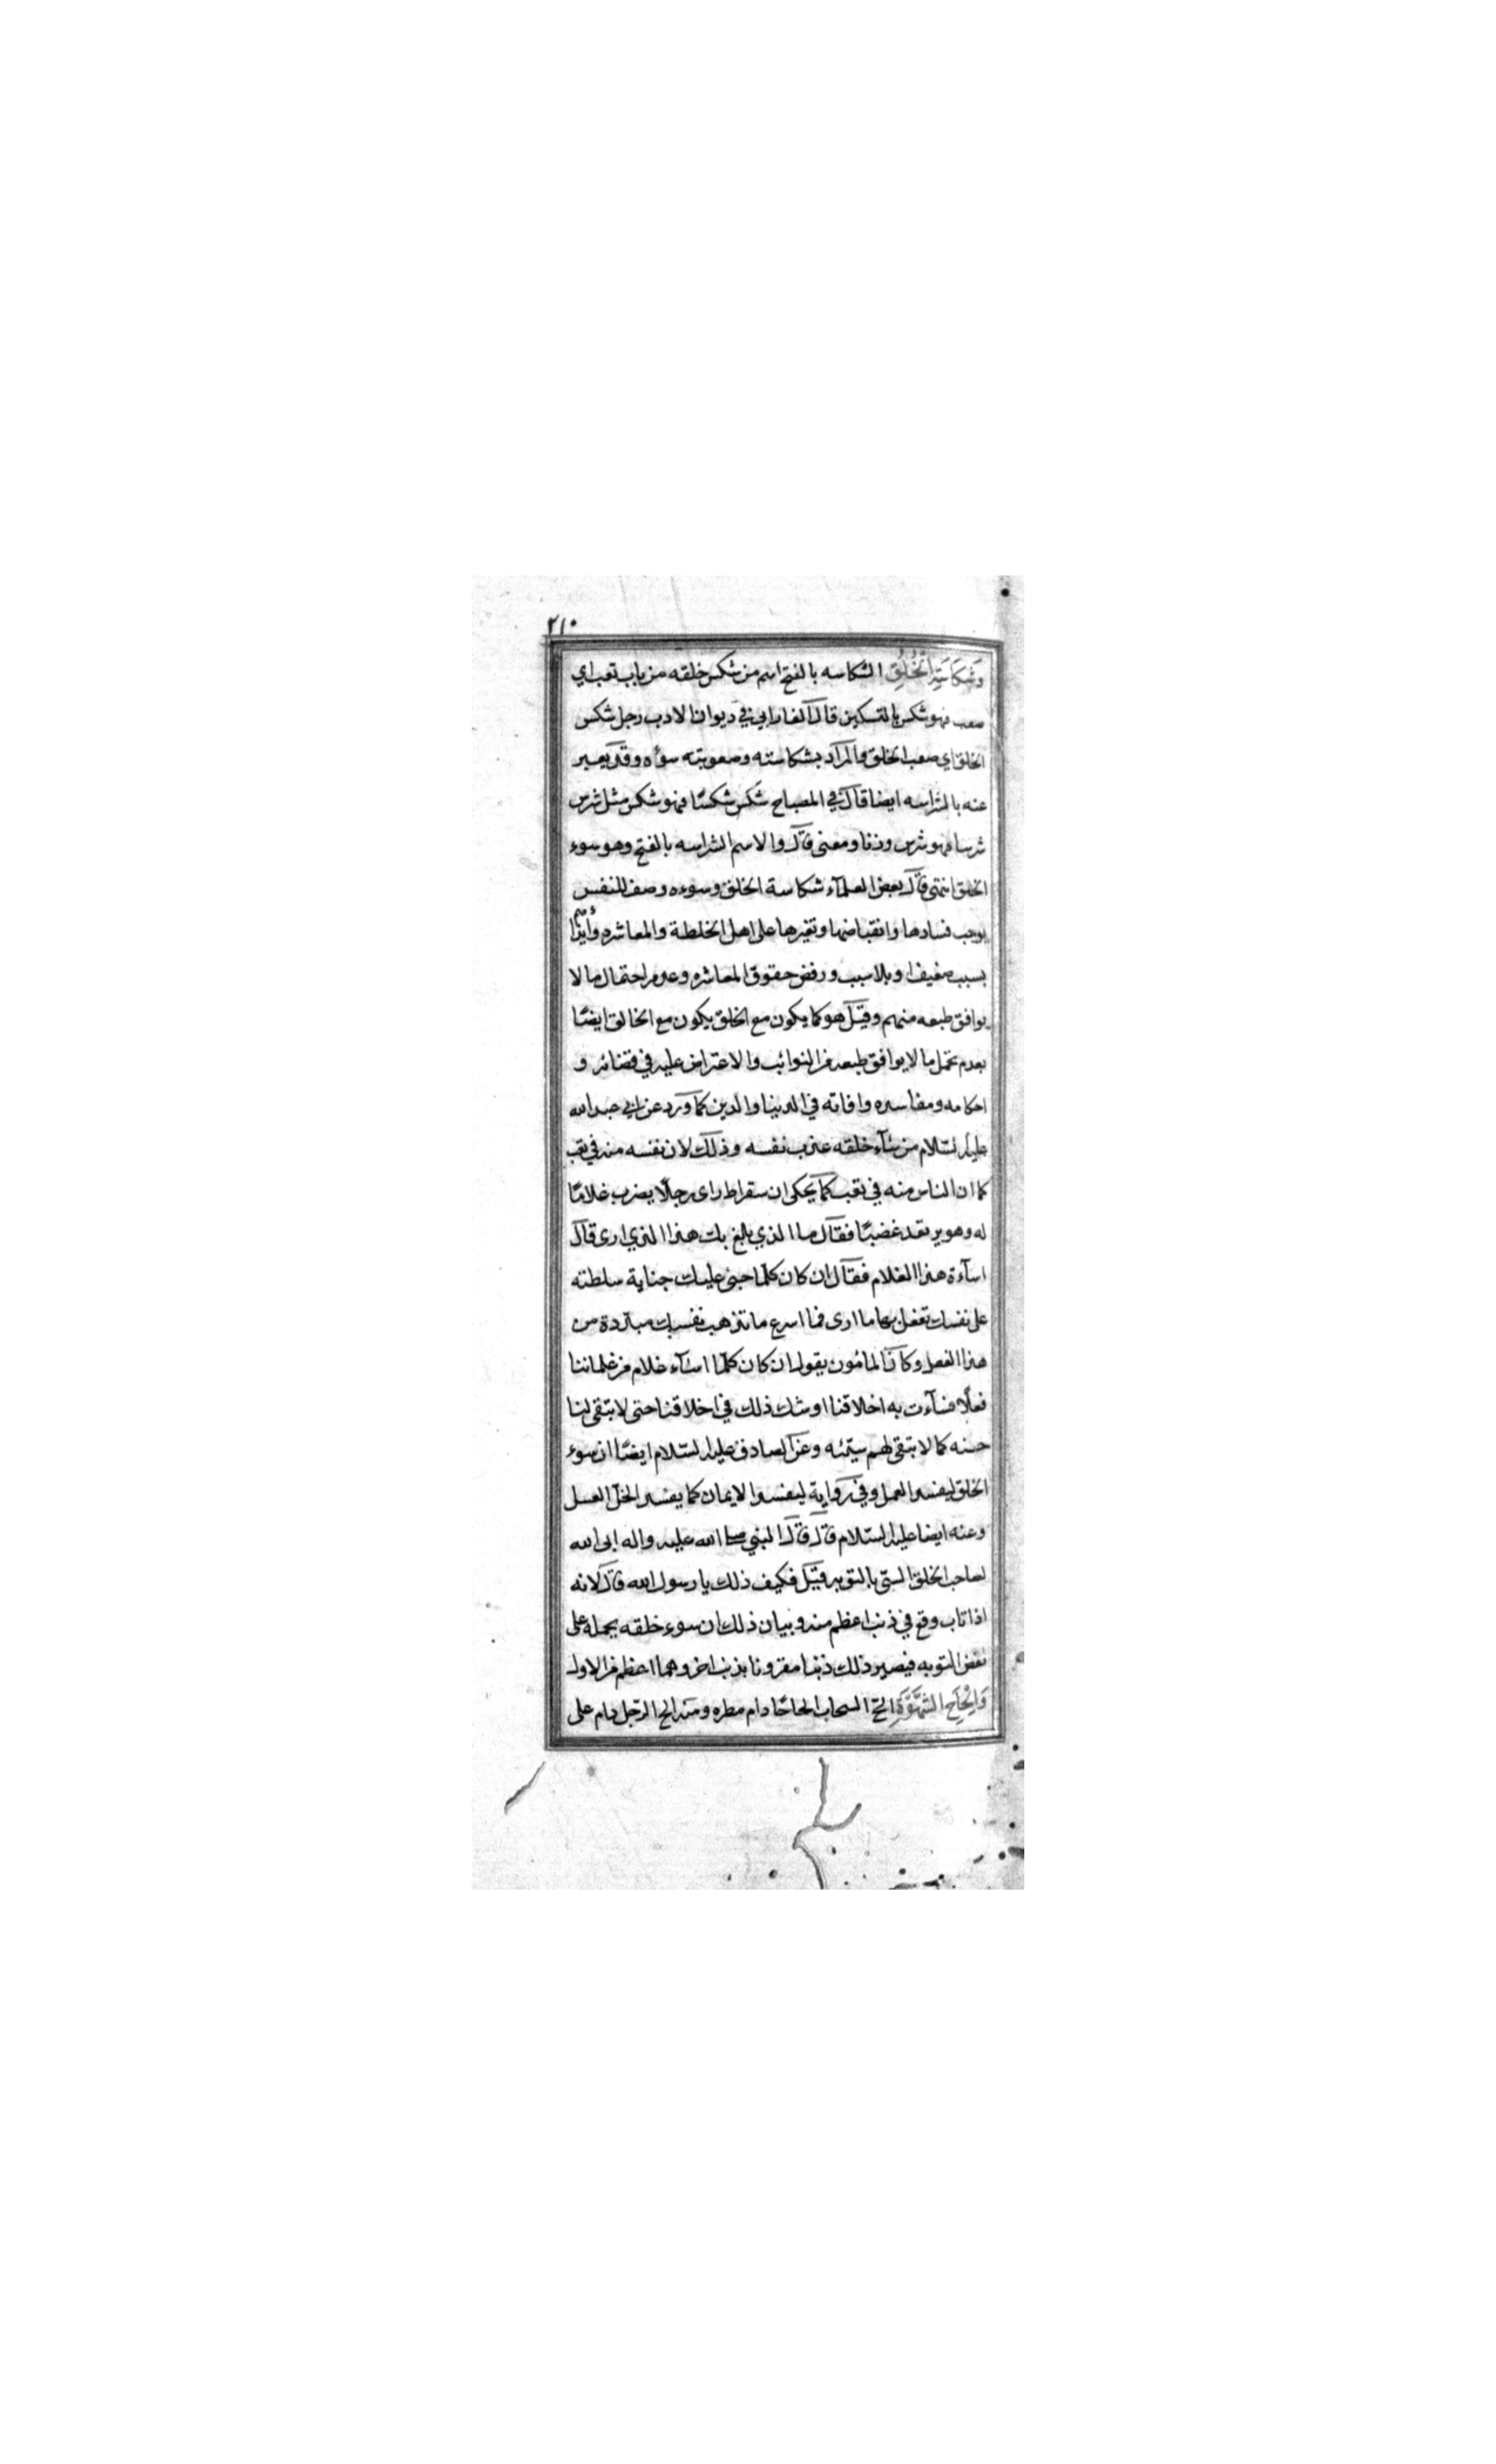 ٢١٠
وَشَكَاسَةِ الْخُلُقِ الشكاسه بالفتح اسم من شكس خلقه من باب تعب اي
صعب فهو شكس بالتسكين قال الفارابي في ديوان الادب رجل شكس
الخلق اي صعب الخلق والمراد بشكاسته وصعوبته سوٓه وقد يعبر
عنه بالشراسه ايضا قال في المصباح شكس شكسًا فهو شكس مثل شرس
شرسا فهو شرس وزنا ومعنى قال والاسم الشراسه بالفتح وهو سوء
الخلق انتهى قال بعض العلمآء شكاسة الخلق وسوءه وصف للنفس
يوجب فسادها وانقباضها وتغيرها على اهل الخلطة والمعاشره وايذائهم
بسبب ضعيف او بلا سبب ورفض حقوق المعاشره وعدم احتمال ما لا
يوافق طبعه منهم وقيل هو كما يكون مع الخلق يكون مع الخالق ايضًا
بعدم تحمل ما لا يوافق طبعه من النوائب والاعتراض عليه في قضائه و
احكامه ومفاسده وافاته في الدنيا والدين كما ورد عن ابي عبد الله
عليه السّلام من سآء خلقه عذب نفسه وذلك لان نفسه منه في تعب
كما ان الناس منه في تعب كما يحكى ان سقراط راى رجلًا يضرب غلامًا
له وهو يرتعد غضبًا فقال ما الذي بلغ بك هذا الذي ارى قال
اسآءة هذا الغلام فقال ان كان كلّما جنى عليك جناية سلطته
على نفسك تفعل بها ما ارى فما اسرع ما تذهب نفسك مبددة من
هذا الفعل وكان المامون يقول ان كان كلّما اسآء غلام من غلماننا
فعلًا فسآءت به اخلاقنا اوشك ذلك في اخلاقنا حتى لا تبقى لنا
حسنه كما لا تبقى لهم سيّئه وعن الصادق عليه السّلام ايضًا ان سوء
الخلق ليفسد العمل وفي رواية ليفسد الايمان كما يفسد الخلّ العسل
وعنه ايضا عليه السّلام قال قال النبي صلى الله عليه واله ابى الله
لصاحب الخلق السّئ بالتوبه قيل فكيف ذلك يا رسول الله قال لانه
اذا تاب وقع في ذنب اعظم منه وبيان ذلك ان سوء خلقه يحمله على
نقض التوبه فيصير ذلك ذنبا مقرونا بذنب اخر وهما اعظم من الاول
وَاِلْحَاحِ الشَّهْوَةِ الحّ السحاب الحاحًا دام مطره ومنه الح الرّجل دام على
بلغ